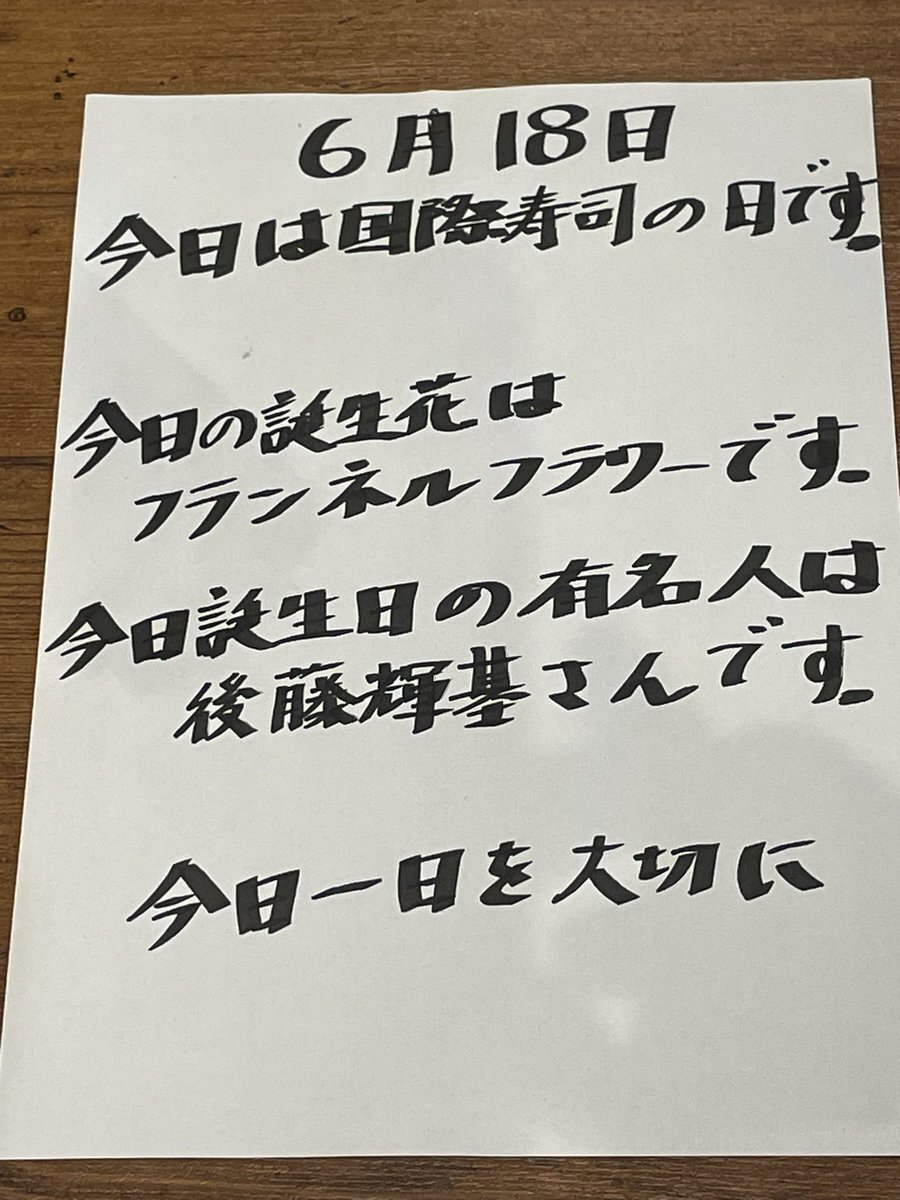 6月18日
今日は国際寿司の日です。
今日の誕生花は
フランネルフラワーです。
今日誕生日の有名人は
後藤輝基さんです。
今日一日を大切に